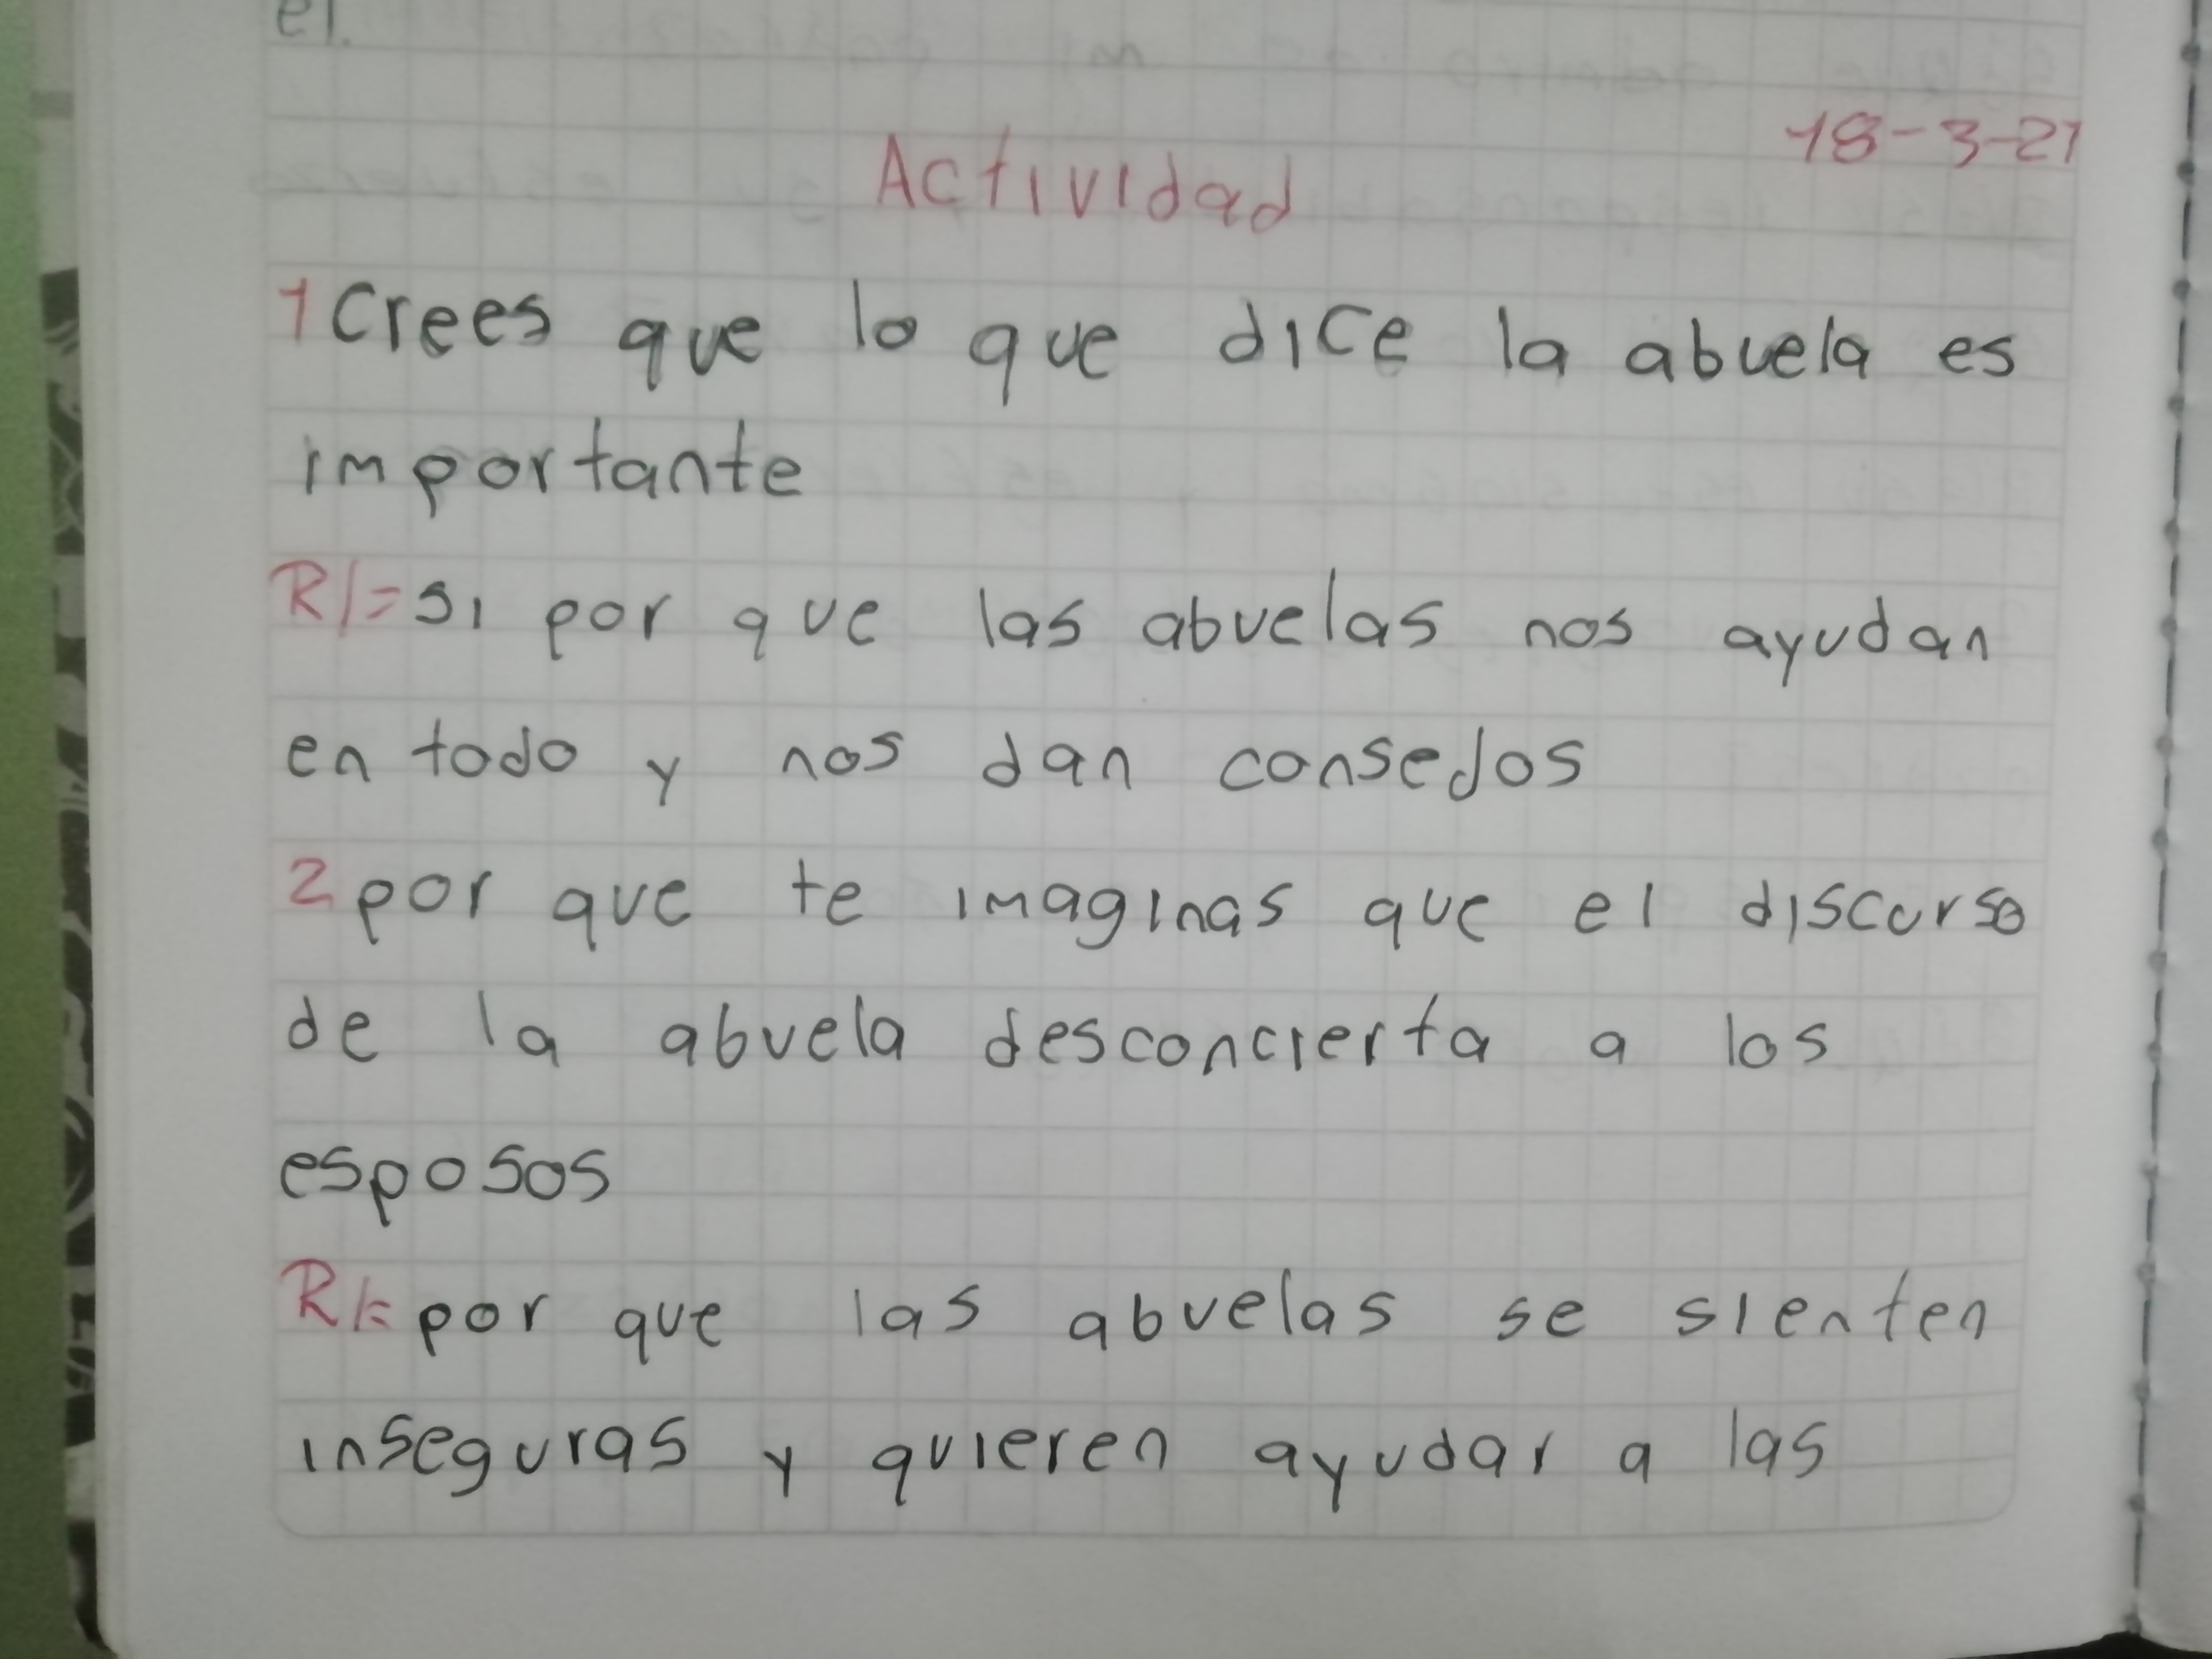 el.
18-3-21
Actividad
1 Crees que lo que dice la abuela es
importante
R/= si por que las abuelas nos ayudan
en todo y nos dan consejos
2 por que te imaginas que el discurso
de la abuela desconcierta a los
esposos
R/= por que las abuelas se sienten
inseguras y quieren ayudar a las